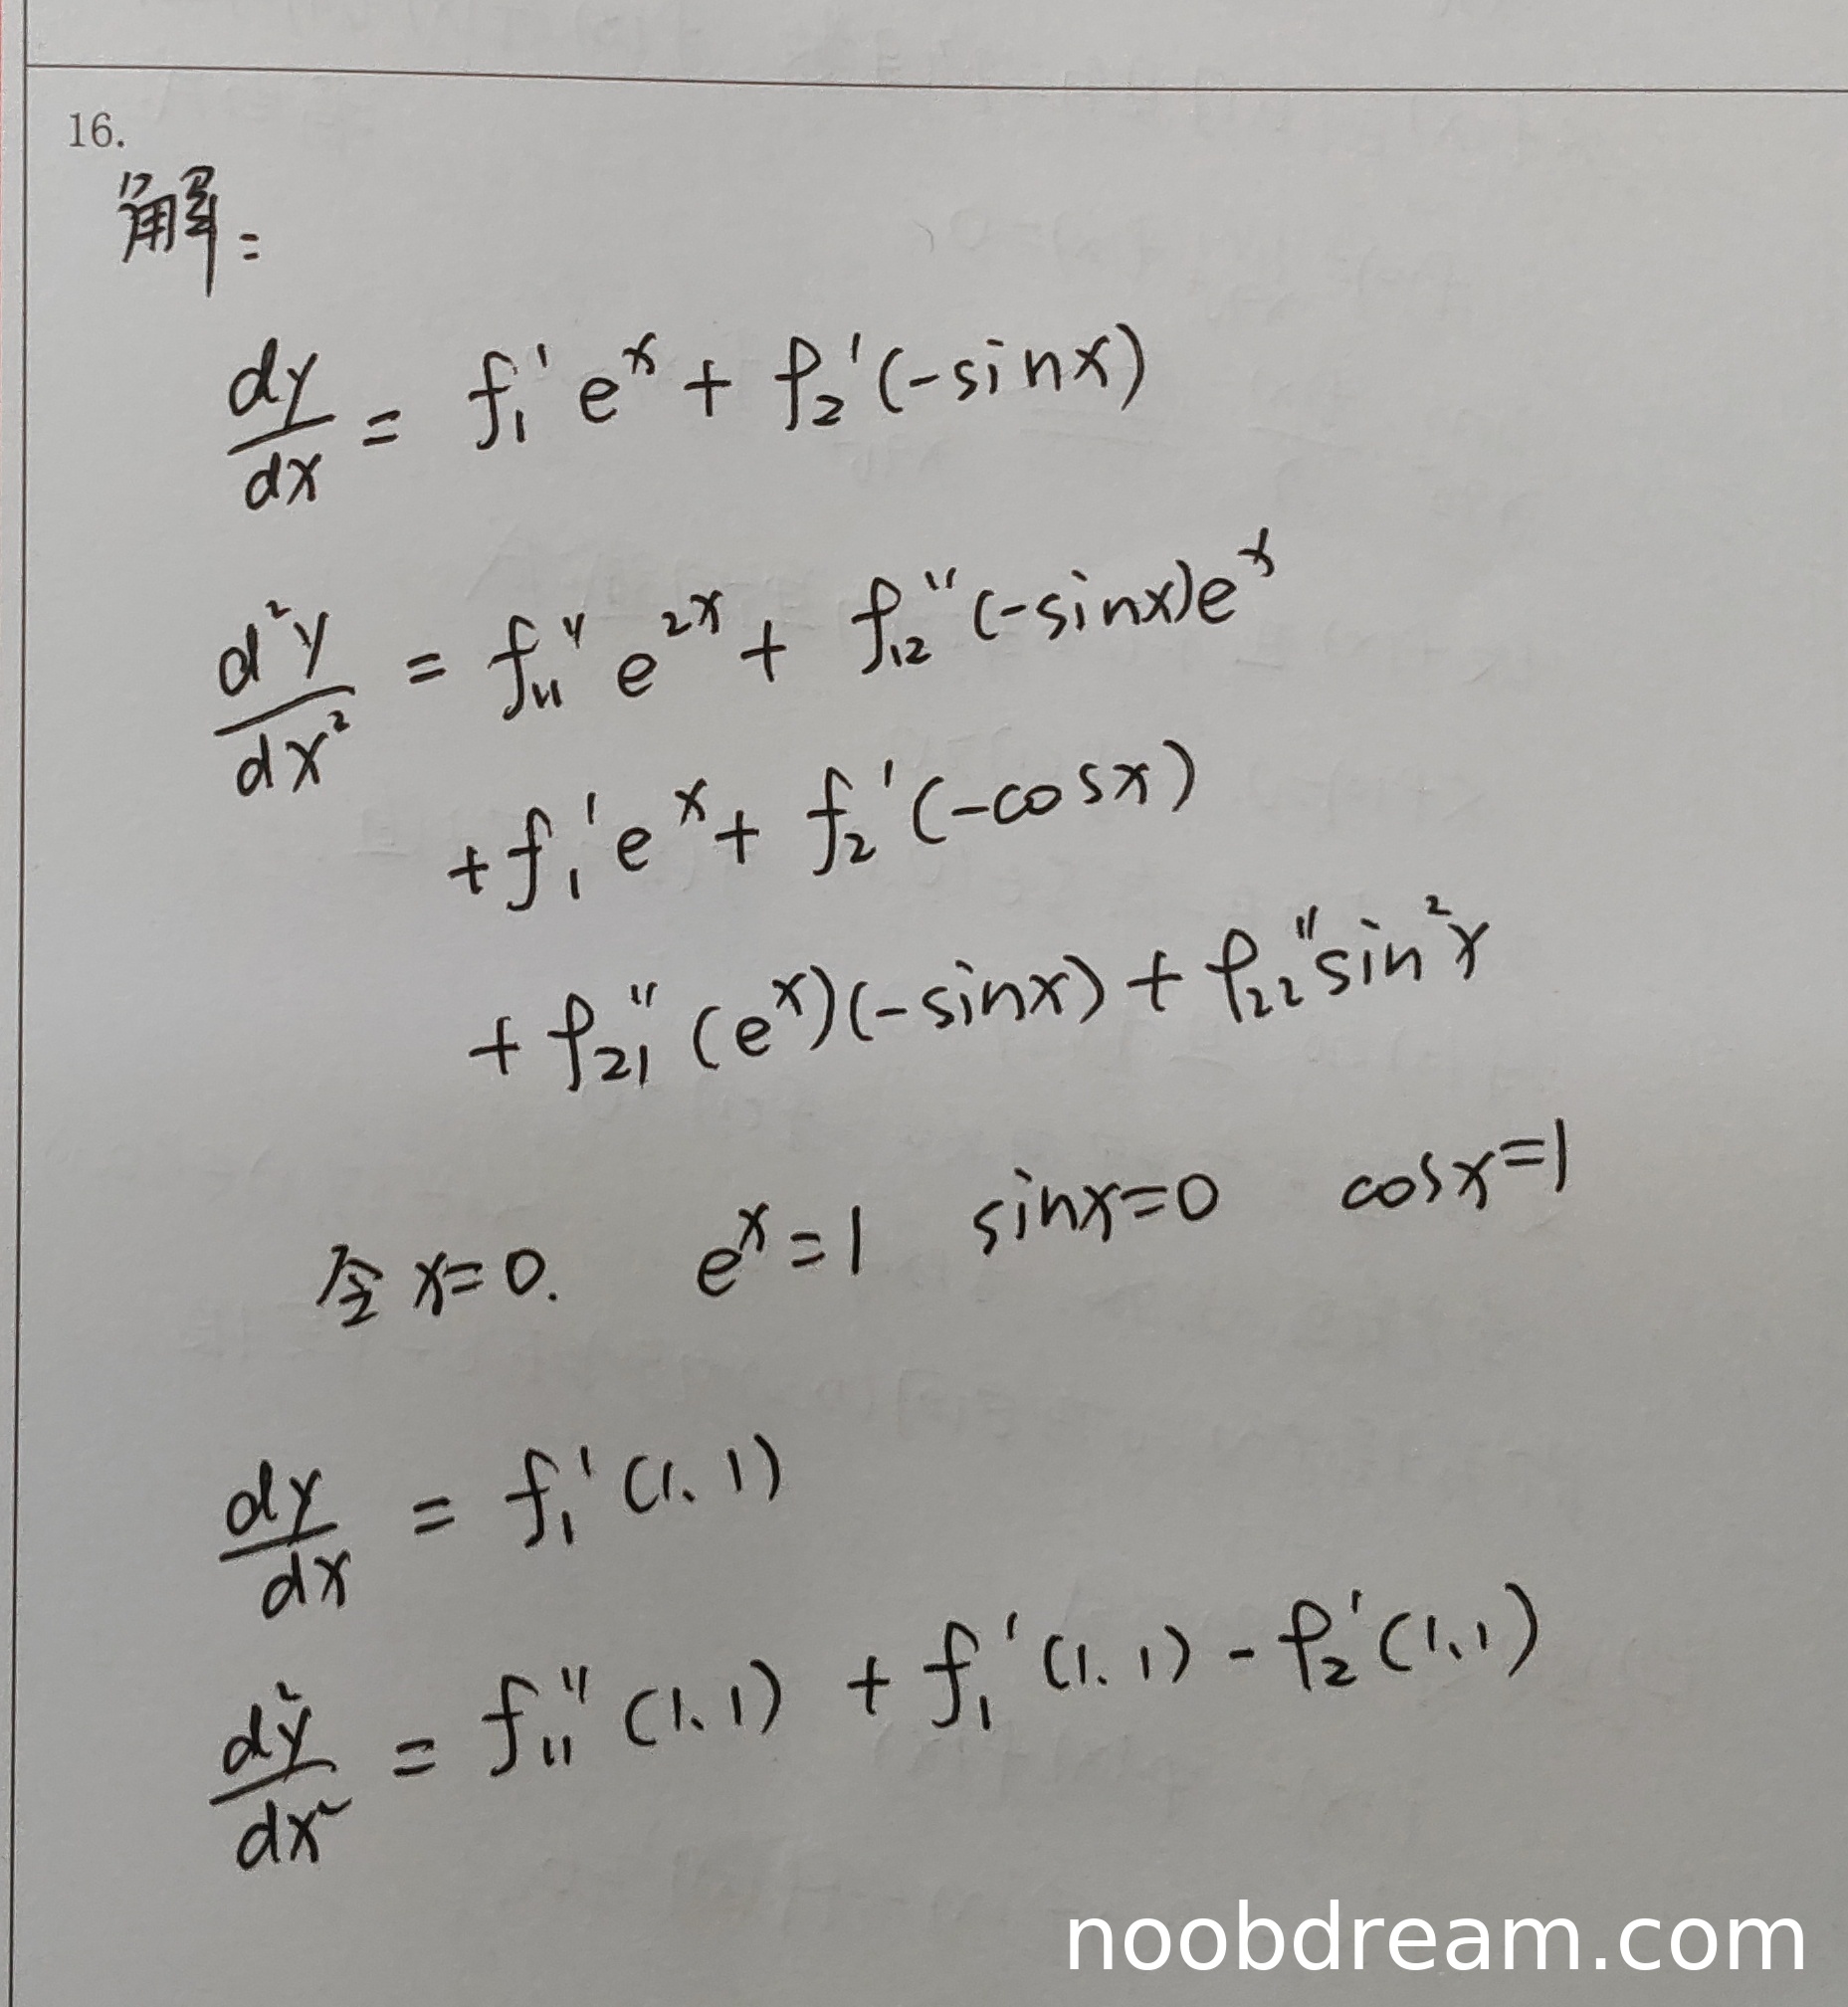 16.
解：
dy/dx = f₁' eˣ + f₂' (-sinx)
d²y/dx² = f₁₁'' e²ˣ + f₁₂'' (-sinx)eˣ
+ f₁' eˣ + f₂' (-cosx)
+ f₂₁'' (eˣ)(-sinx) + f₂₂'' sin²x
令 x=0. eˣ=1 sinx=0 cosx=1
dy/dx = f₁' (1.1)
d²y/dx² = f₁₁'' (1.1) + f₁' (1.1) - f₂' (1,1)
noobdream.com